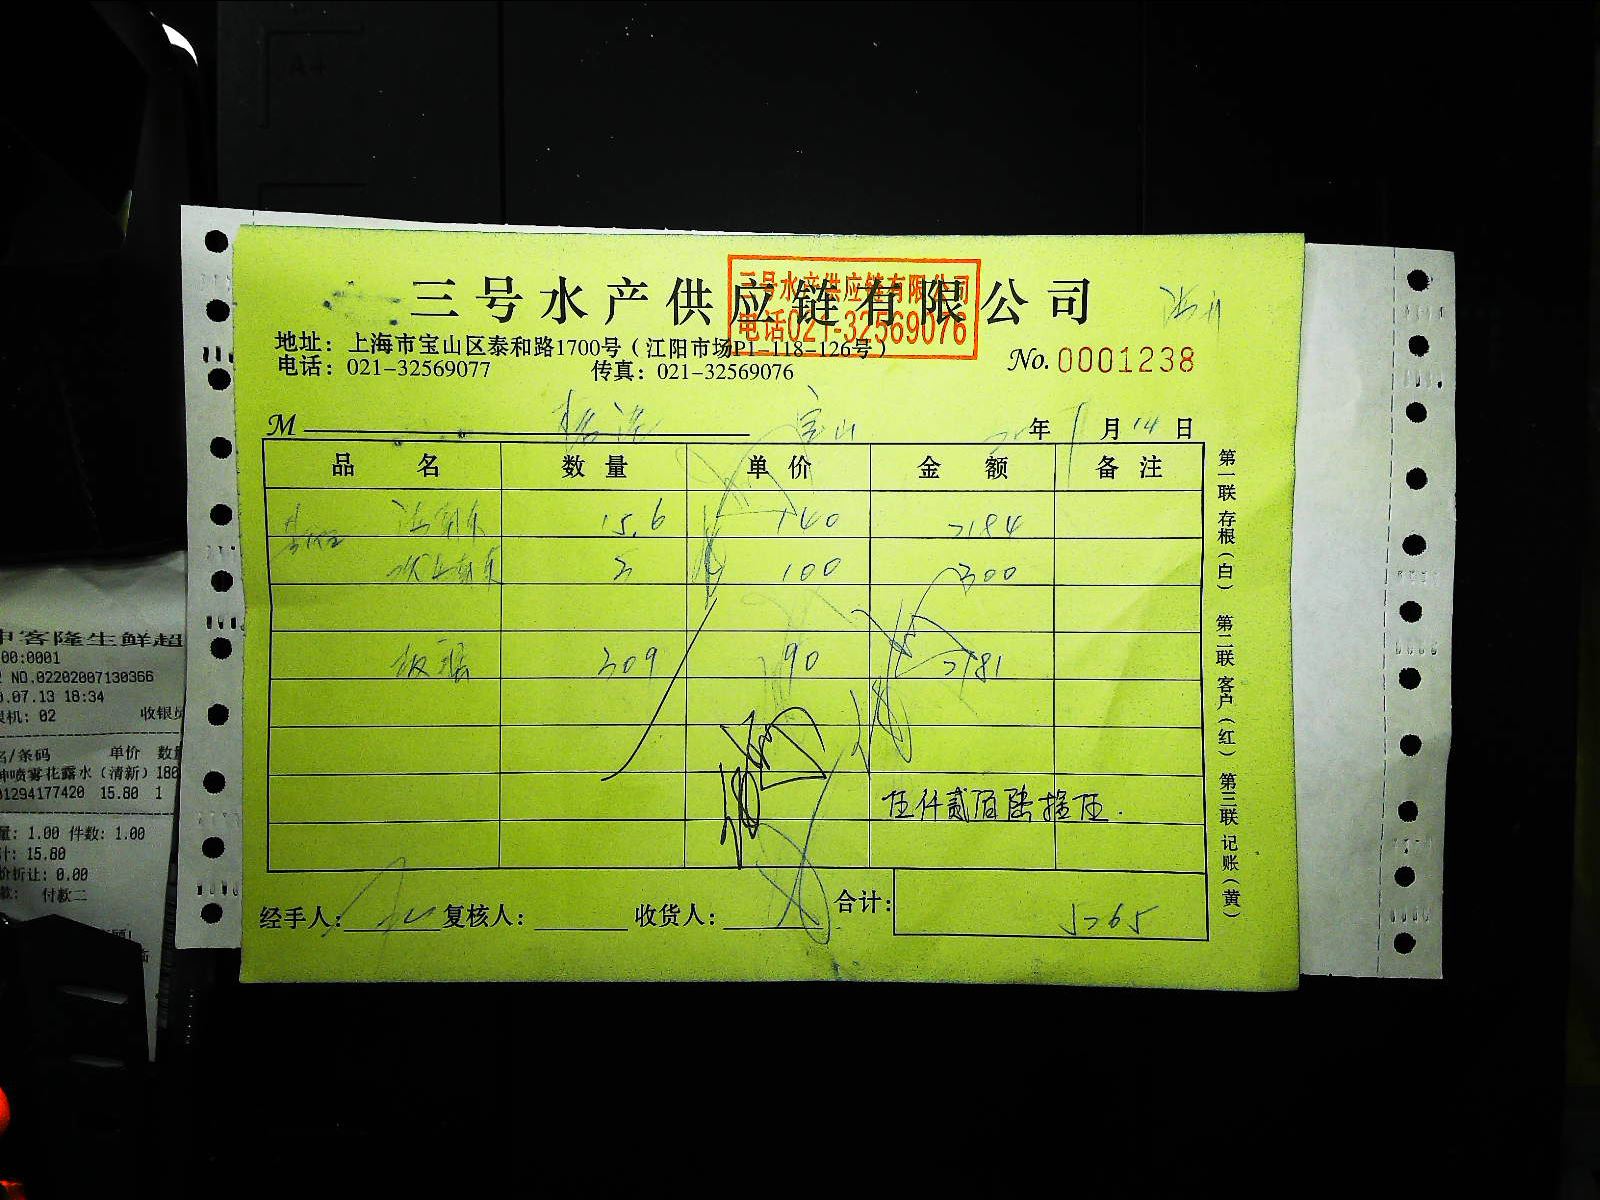 三号水产供应链有限公司
三号水产供应链有限公司
电话021-32569076
地址：上海市宝山区泰和路1700号（江阳市场P1-118-126号）
电话：021-32569077 传真：021-32569076
No.0001238
M 宝山 年 1 月 14 日
品名 数量 单价 金额 备注
15.6 140 2184
3 100 300
309 90 2781
伍仟贰佰陆拾伍.
经手人： 复核人： 收货人： 合计： 5265
第一联 存根（白） 第二联 客户（红） 第三联 记账（黄）
客隆生鲜超
00:0001
NO.02202007130366
.07.13 18:34
机：02 收银员
名/条码 单价 数量
喷雾花露水（清新）180
01294177420 15.80 1
量：1.00 件数：1.00
计：15.80
价折让：0.00
付款二